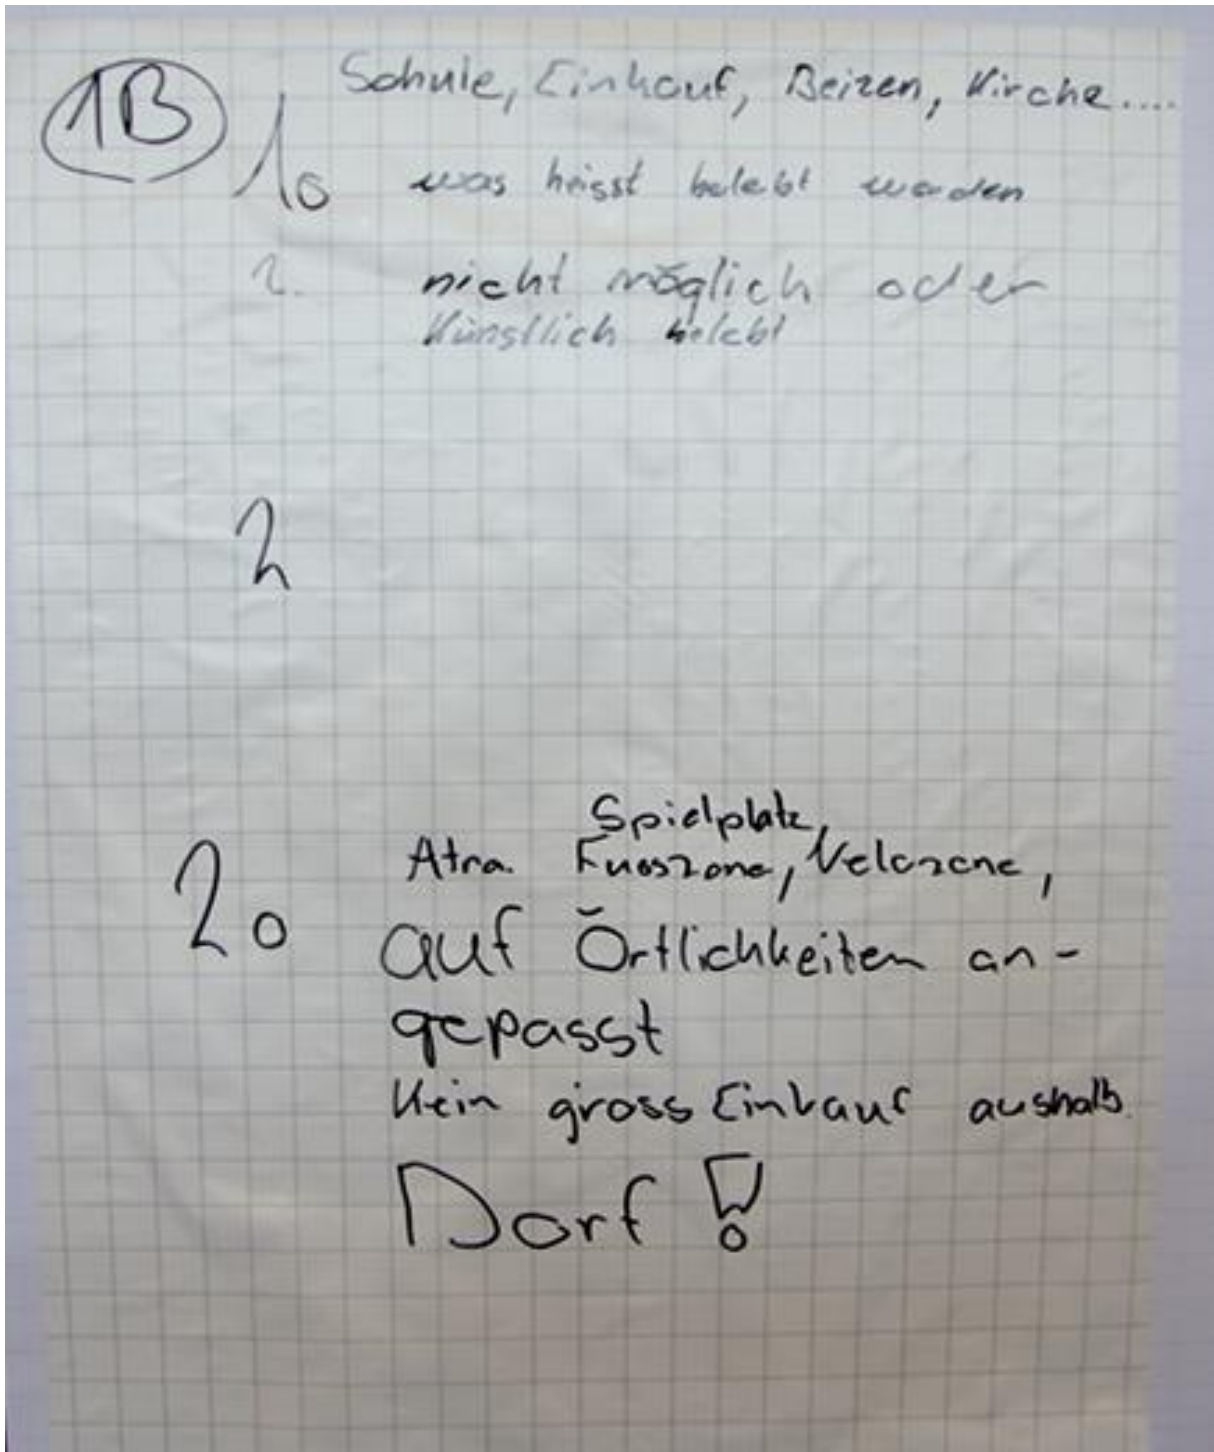 1B
Schule, Einkauf, Beizen, Kirche....
1o was heisst belebt werden
2. nicht möglich oder
künstlich belebt
2
Spielplatz,
Atra. Fusszone, Velozone,
2o auf Örtlichkeiten an-
gepasst
Kein gross Einkauf aushalb
Dorf !